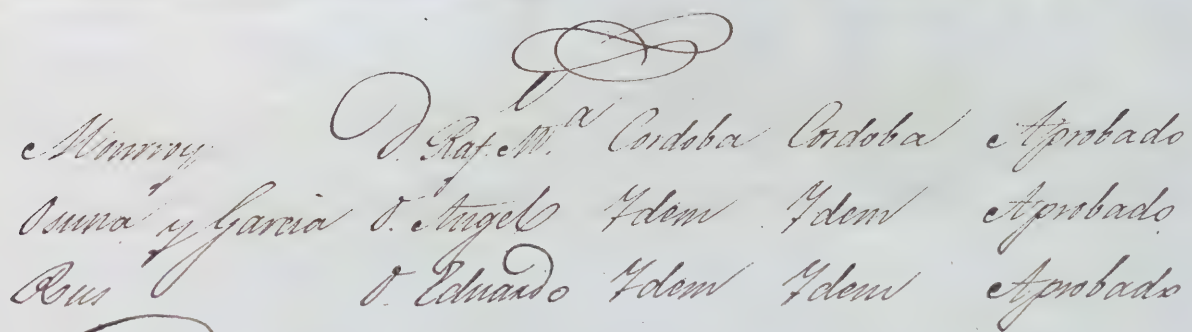 Monrroy D. Raf. M.ª Cordoba Cordoba Aprobado
Osuna y Garcia D. Angel Idem Idem Aprobado.
Rus D. Eduardo Idem Idem Aprobado